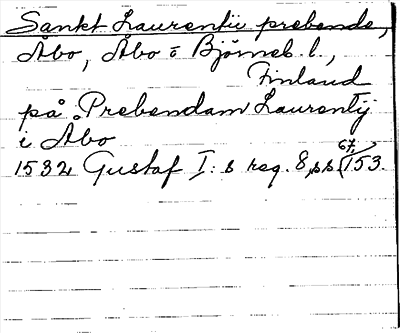 Sankt Laurentii prebende,
Åbo, Åbo o Björneb. l.,
Finland
på Prebendam Laurentij
i Åbo
1532 Gustaf I:s reg. 8, ss. 67, 153.